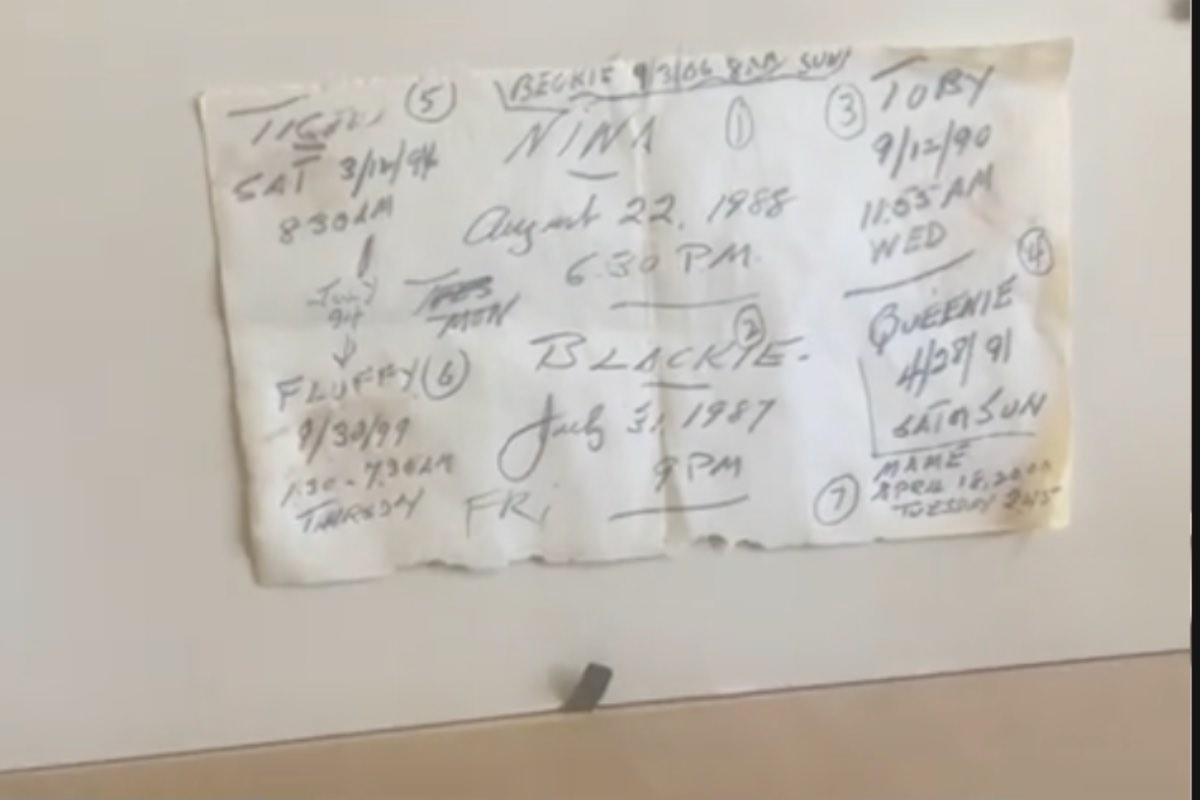 BECKIE 9/3/06 SUN
NINA ①
August 22, 1988
6:30 PM.
MON
② BLACKIE.
July 31, 1987
9 PM
FRi
③ TOBY
9/12/90
11:55 AM
WED
④
QUEENIE
4/28/91
SAT or SUN
⑤
SAT 3/12/94
8:30 AM
July
94
FLUFFY ⑥
9/30/99
1:30 - 7:30 AM
THURSDAY
⑦ MAME
APRIL 18, 2000
TUESDAY 2:45